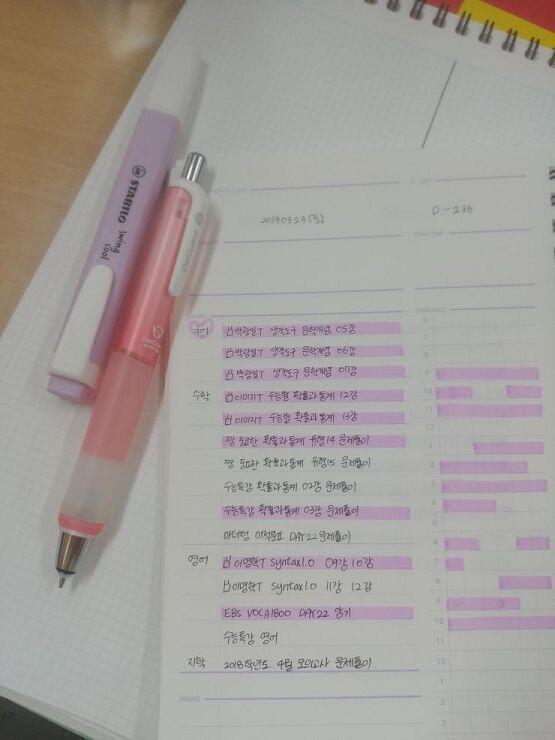 STABILO swing cool
2019.03.23(토)
D-236
TOTAL TIME
TIMETABLE
국어 박광일T 생각도구 문학개념 05강
박광일T 생각도구 문학개념 06강
박광일T 생각도구 문학개념 07강
수학 이미지T 수능별 확률과통계 12강
이미지T 수능별 확률과통계 13강
짱 중요한 확률과통계 유형14 문제풀이
짱 중요한 확률과통계 유형15 문제풀이
수능특강 확률과통계 02강 문제풀이
수능특강 확률과통계 03강 문제풀이
마더텅 미적분Ⅱ DAY22 문제풀이
영어 이명학T Syntax1.0 09강 10강
이명학T Syntax1.0 11강 12강
EBS VOCA1800 DAY22 암기
수능특강 영어
지학 2018학년도 4월 모의고사 문제풀이
MEMO
6
7
8
9
10
11
12
1
2
3
4
5
6
7
8
9
10
11
12
1
2
3